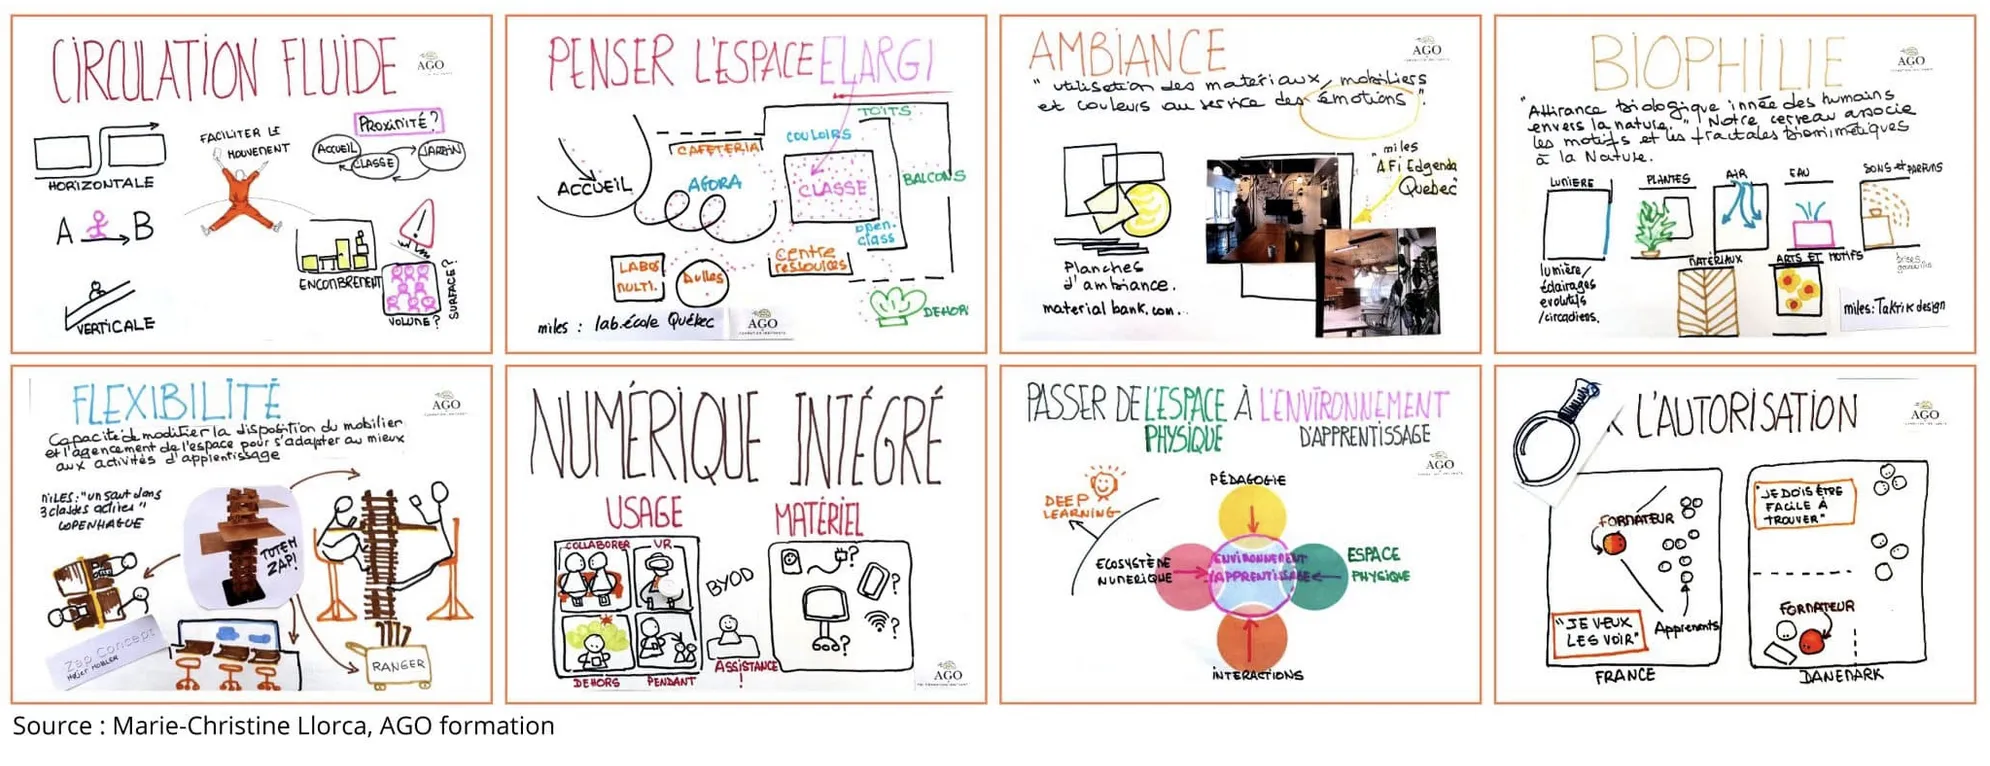 CIRCULATION FLUIDE
AGO
HORIZONTALE
FACILITER LE
MOUVEMENT
PROXIMITÉ?
ACCUEIL
CLASSE
JARDIN
A
B
VERTICALE
ENCOMBREMENT
VOLUME?
SURFACE?
PENSER L'ESPACE ELARGI
TOITS
COULOIRS
CAFETERIA
ACCUEIL
AGORA
CLASSE
BALCONS
open.
class
LABOS
MULTI.
Bulles
Centre
ressources
DEHORS
miles : lab.école Québec
AGO
AMBIANCE
AGO
"utilisation des matériaux, mobiliers
et couleurs au service des émotions".
miles
AFi Edgenda
Quebec
Planches
d'ambiance.
material bank.com..
BIOPHILIE
AGO
"Attirance biologique innée des humains
envers la nature." Notre cerveau associe
les motifs et les fractales biomimétiques
à la Nature.
LUMIERE
PLANTES
AIR
EAU
SONS et PARFUNS
lumière/
éclairages
evolutifs
/circadiens.
MATERIAUX
ARTS ET MOTIFS
miles: Taktik design
FLEXIBILITÉ
AGO
Capacité de modifier la disposition du mobilier
et l'agencement de l'espace pour s'adapter au mieux
aux activités d'apprentissage
MILES: "un saut dans
3 classes actives"
COPENHAGUE
TOTEM
ZAP!
Zap Concept
Højer MØBLER
RANGER
NUMÉRIQUE INTÉGRÉ
USAGE
MATÉRIEL
COLLABORER
VR
BYOD
DEHORS
PENDANT
ASSISTANCE
!
?
?
?
?
AGO
PASSER DE L'ESPACE À L'ENVIRONNEMENT
PHYSIQUE
D'APPRENTISSAGE
AGO
PÉDAGOGIE
DEEP
LEARNING
ECOSYSTÈME
NUMERIQUE
ENVIRONNEMENT
D'APPRENTISSAGE
ESPACE
PHYSIQUE
INTERACTIONS
L'AUTORISATION
AGO
FORMATEUR
"JE VEUX
LES VOIR"
Apprenants
FRANCE
"JE DOIS ÊTRE
FACILE À
TROUVER"
FORMATEUR
DANEMARK
Source : Marie-Christine Llorca, AGO formation